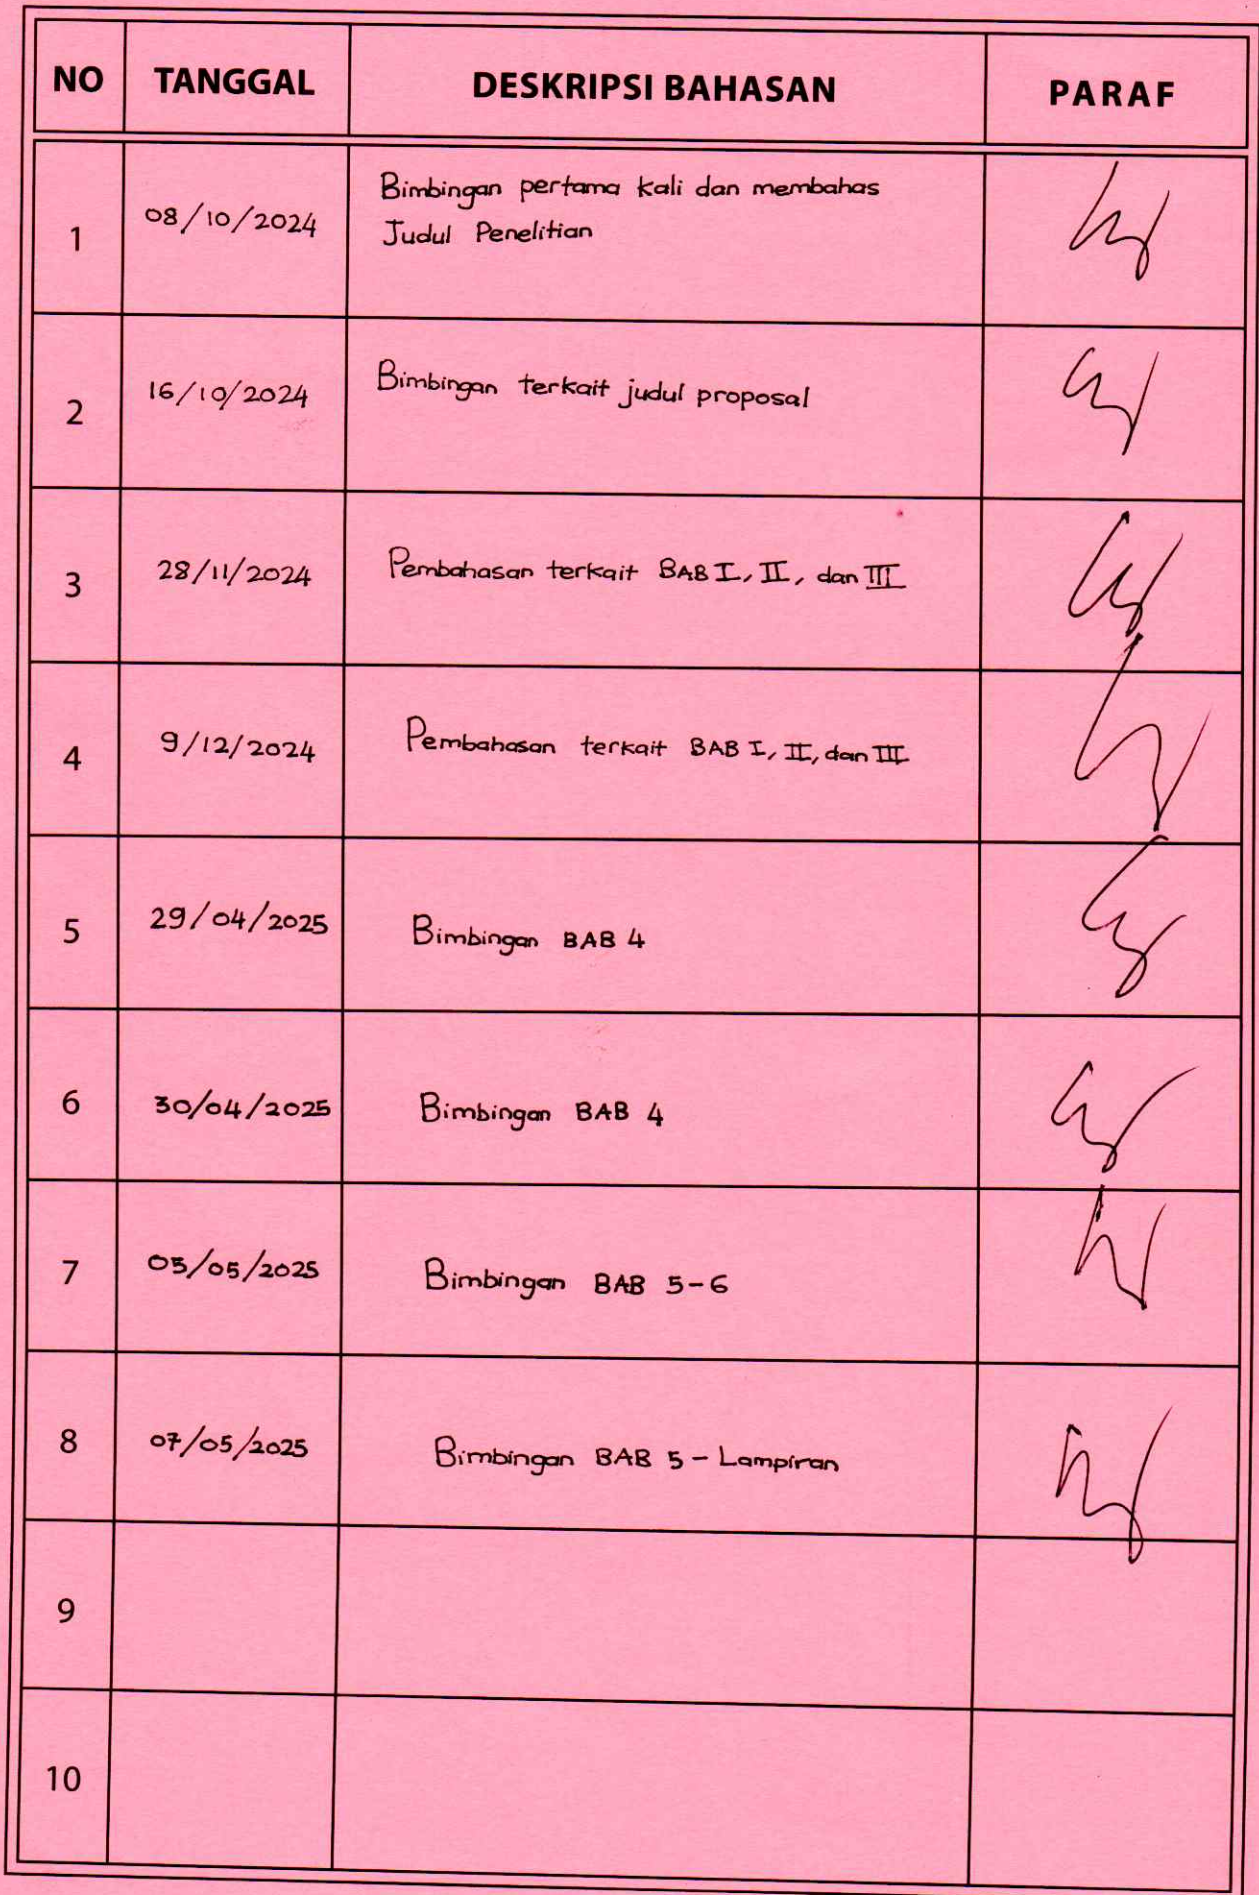 NO TANGGAL DESKRIPSI BAHASAN PARAF
1 08/10/2024 Bimbingan pertama kali dan membahas
Judul Penelitian
2 16/10/2024 Bimbingan terkait judul proposal
3 28/11/2024 Pembahasan terkait BAB I, II, dan III
4 9/12/2024 Pembahasan terkait BAB I, II, dan III
5 29/04/2025 Bimbingan BAB 4
6 30/04/2025 Bimbingan BAB 4
7 05/05/2025 Bimbingan BAB 5-6
8 07/05/2025 Bimbingan BAB 5 - Lampiran
9
10